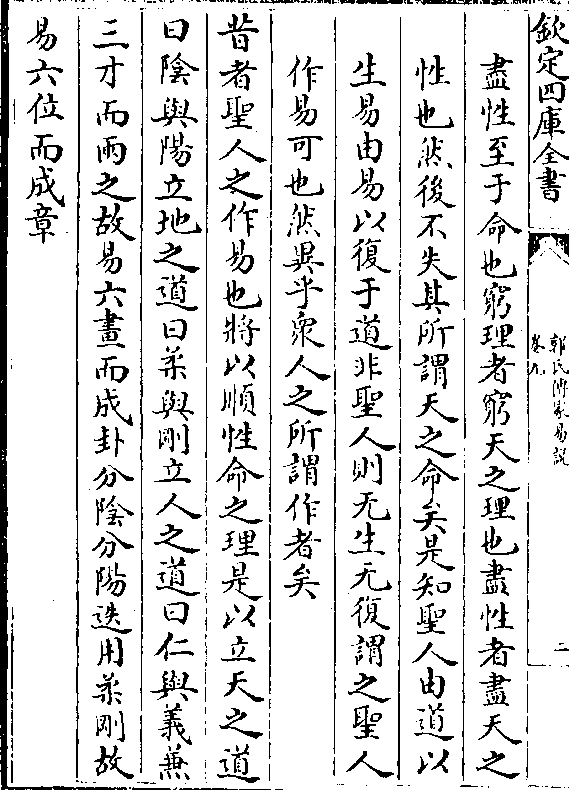 欽定四庫全書
郭氏傳家易說
卷九
二
盡性至于命也窮理者窮天之理也盡性者盡天之
性也然後不失其所謂天之命矣是知聖人由道以
生易由易以復于道非聖人則无生无復謂之聖人
作易可也然異乎衆人之所謂作者矣
昔者聖人之作易也將以順性命之理是以立天之道
曰陰與陽立地之道曰柔與剛立人之道曰仁與義兼
三才而兩之故易六畫而成卦分陰分陽迭用柔剛故
易六位而成章